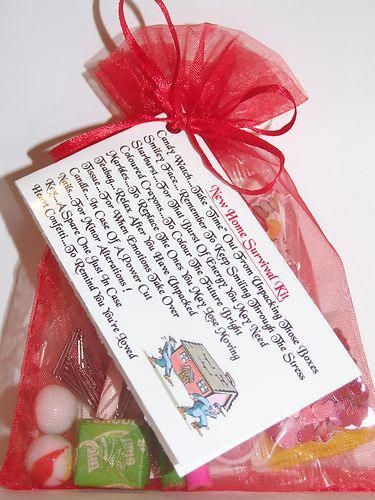 New Home Survival Kit
Candy Watch...Take Time Out From Unpacking Those Boxes
Smiley Face...Remember To Keep Smiling Through The Stress
Starburst...For That Burst Of Energy You May Need
Coloured Crayon...To Colour The Future Bright
Marbles...To Replace The Ones You May Lose Moving
Teabag...Relax After You Have Unpacked
Tissue...For When Emotions Take Over
Candle...In Case Of A Power Cut
Nails...For Minor Alterations !
Key...A Spare One Just In Case
Heart Confetti...To Remind You You're Loved